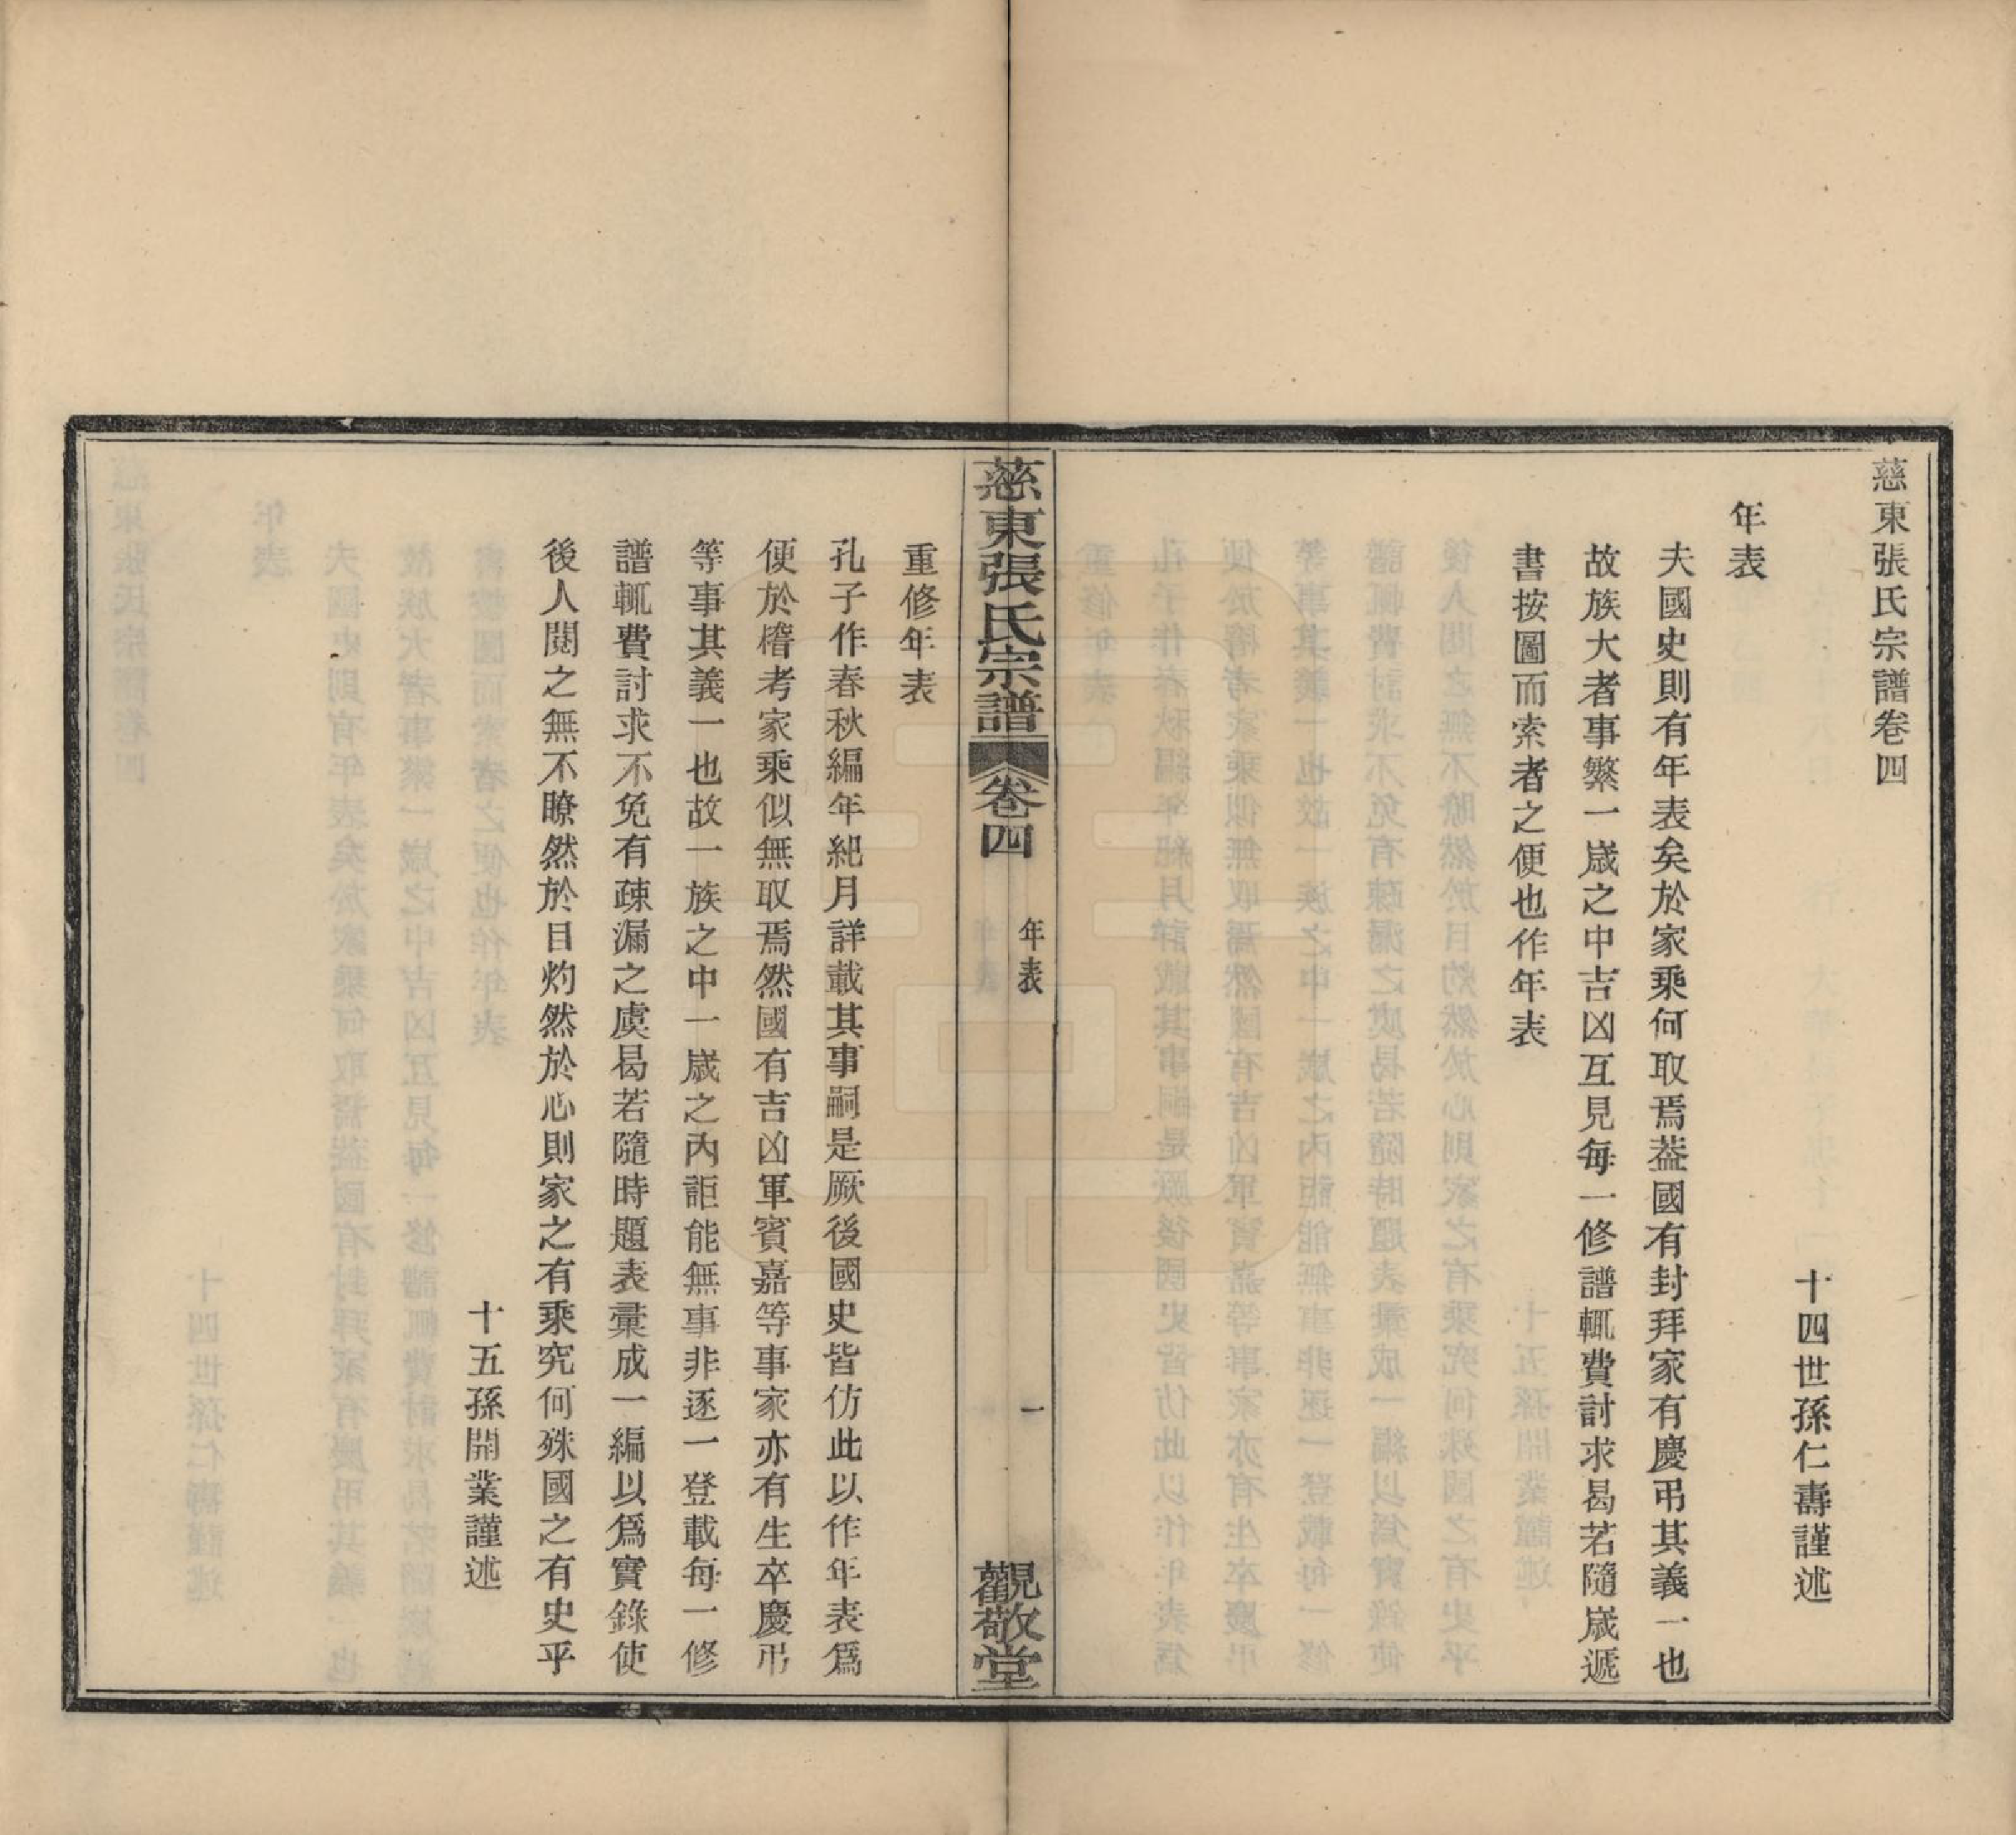 慈東張氏宗譜卷四
十四世孫仁壽謹述
年表
夫國史則有年表矣於家乘何取焉葢國有封拜家有慶弔其義一也
故族大者事繁一歲之中吉凶互見每一修譜輒費討求曷若隨歲遞
書按圖而索者之便也作年表
慈東張氏宗譜
卷四
年表
一
觀敬堂
重修年表
孔子作春秋編年紀月詳載其事嗣是厥後國史皆仿此以作年表爲
便於稽考家乘似無取焉然國有吉凶軍賓嘉等事家亦有生卒慶弔
等事其義一也故一族之中一歲之內詎能無事非逐一登載每一修
譜輒費討求不免有疎漏之虞曷若隨時題表彚成一編以爲實錄使
後人閱之無不瞭然於目灼然於心則家之有乘究何殊國之有史乎
十五孫開業謹述